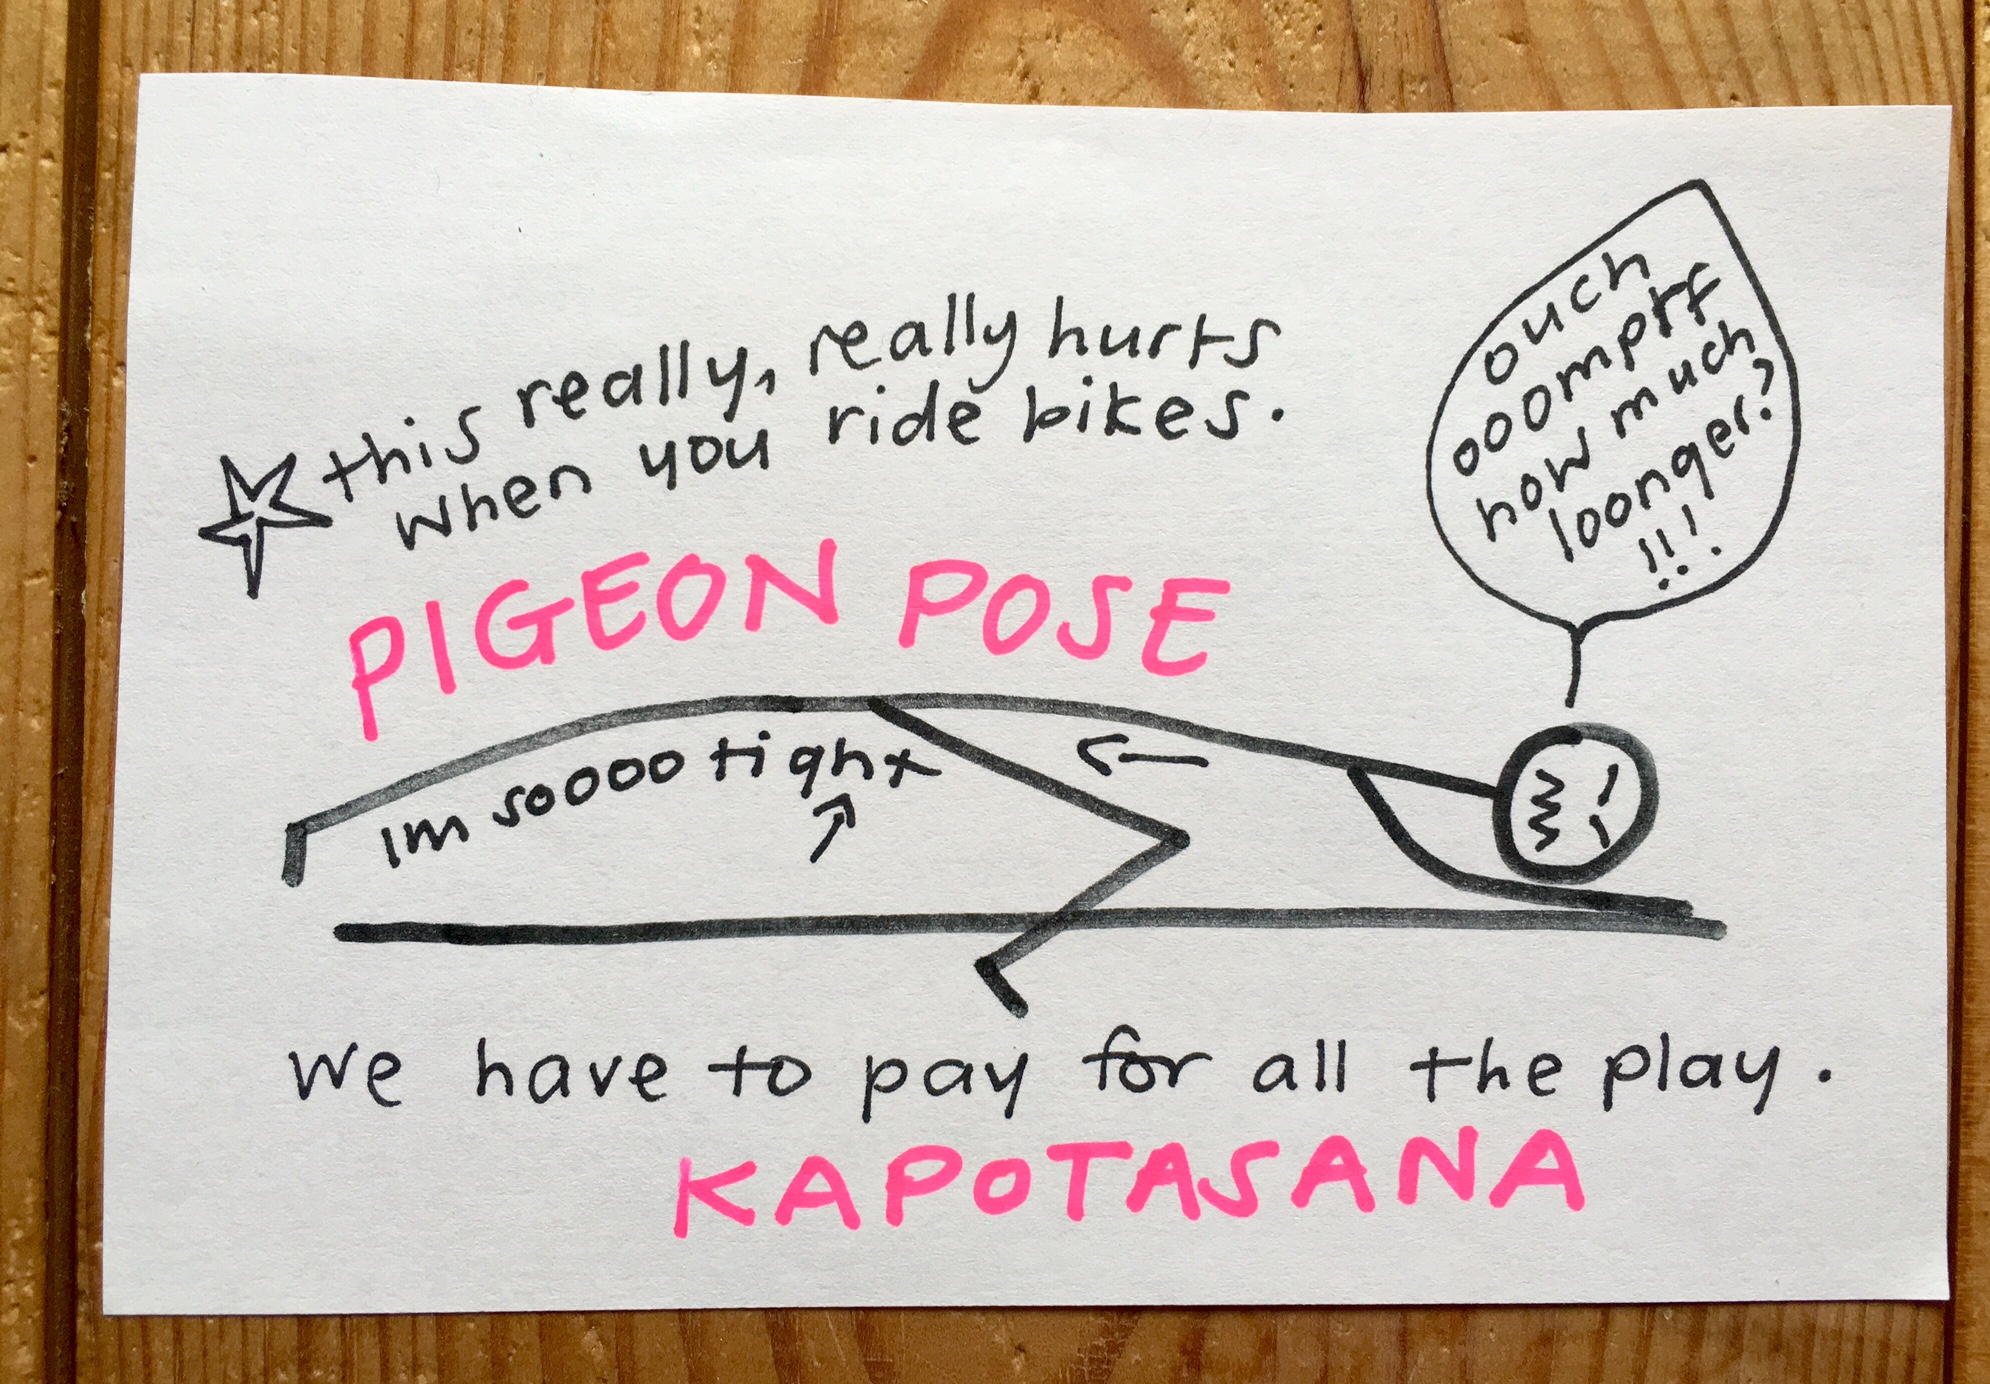 this really, really hurts
when you ride bikes.
PIGEON POSE
ouch
ooompff
how much
loonger?
!!!
im soooo tight
we have to pay for all the play.
KAPOTASANA